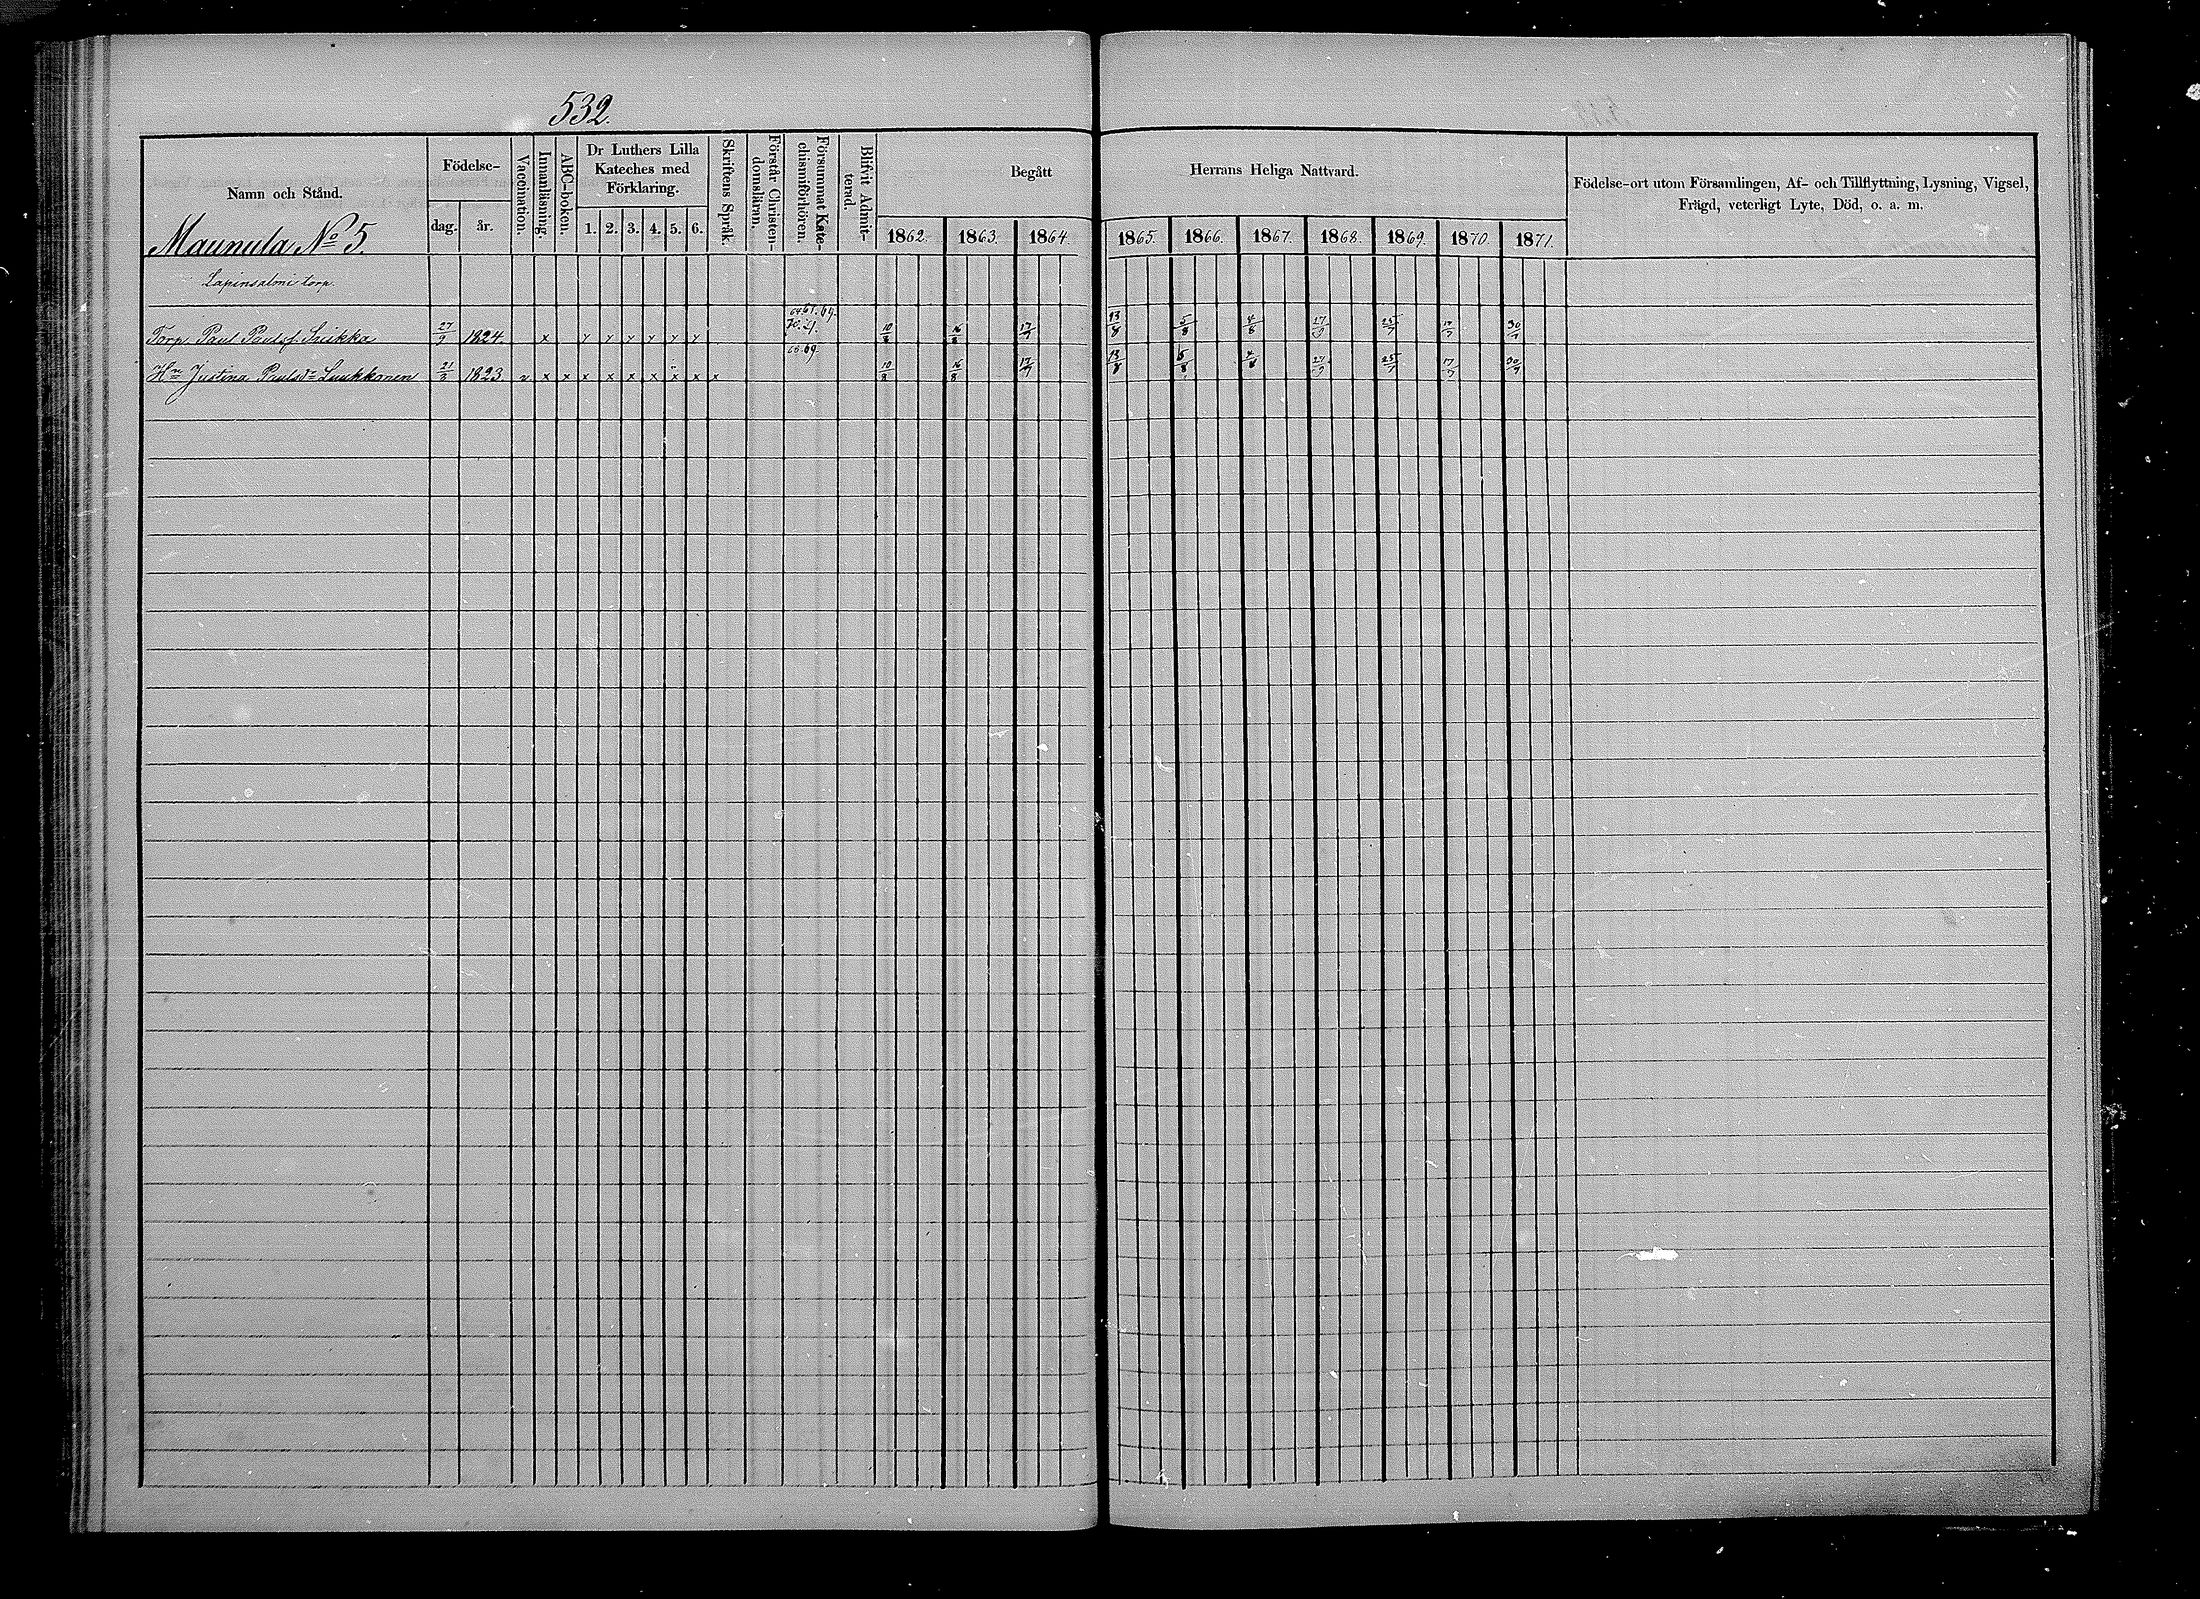 532.
Namn och Stånd.
Födelse-
dag. år.
Vaccination.
Innanläsning.
ABC-boken.
Dr Luthers Lilla
Kateches med
Förklaring.
1. 2. 3. 4. 5. 6.
Skriftens Språk.
Förstår Christen-
domsläran.
Försummat Kate-
chismiförhören.
Blifvit Admit-
terad.
Begått Herrans Heliga Nattvard.
1862. 1863. 1864. 1865. 1866. 1867. 1868. 1869. 1870. 1871.
Födelse-ort utom Församlingen, Af- och Tillflyttning, Lysning, Vigsel,
Frägd, veterligt Lyte, Död, o. a. m.
Maunula No 5.
Lapinsalmi torp.
Torp. Paul Paulsf. 27/9 1824 x y y y y y y 10/8 16/8 17/7 13/8 5/8 4/8 25/7 17/7 30/7
Hu Justina Paulsdr Luukkanen 21/3 1823 v x x x x x x x x x 68.69. 10/8 16/8 17/7 13/8 5/8 4/8 25/7 17/7 30/7